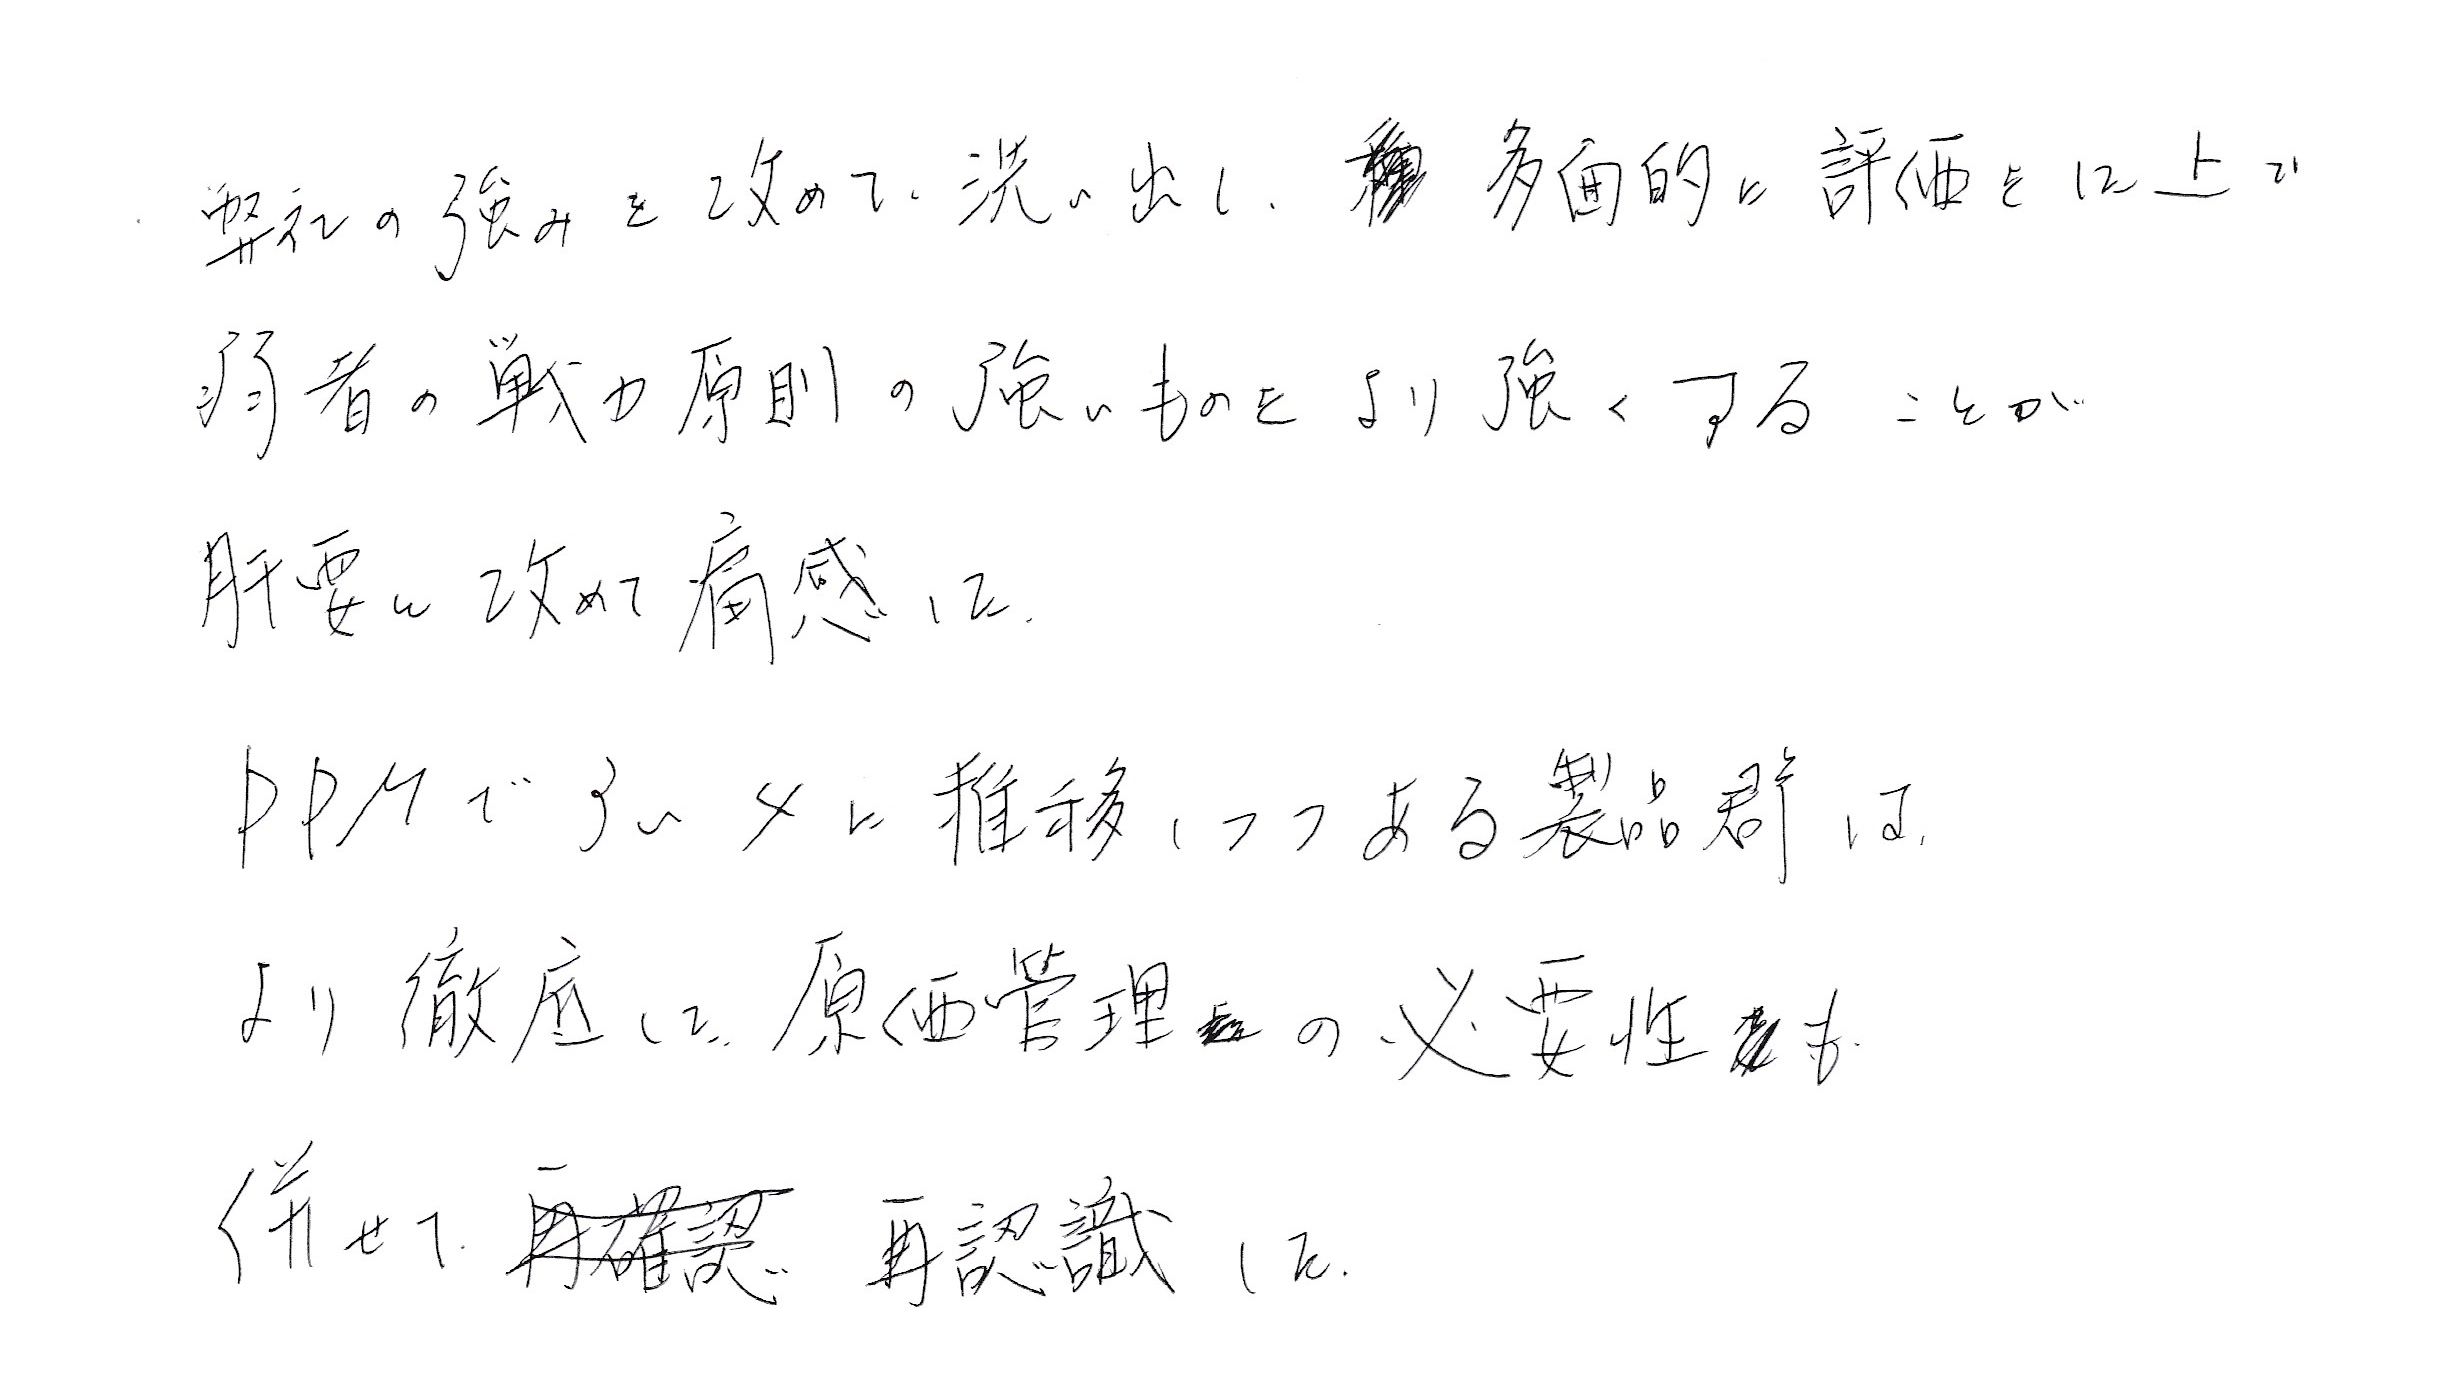 弊社の強みを改めて洗い出し、多面的に評価をした上で
弱者の戦力原則の強いものをより強くすることが
肝要と改めて痛感した。
PPMで3い4に推移しつつある製品群は、
より徹底した原価管理の必要性も
併せて再確認 再認識した。